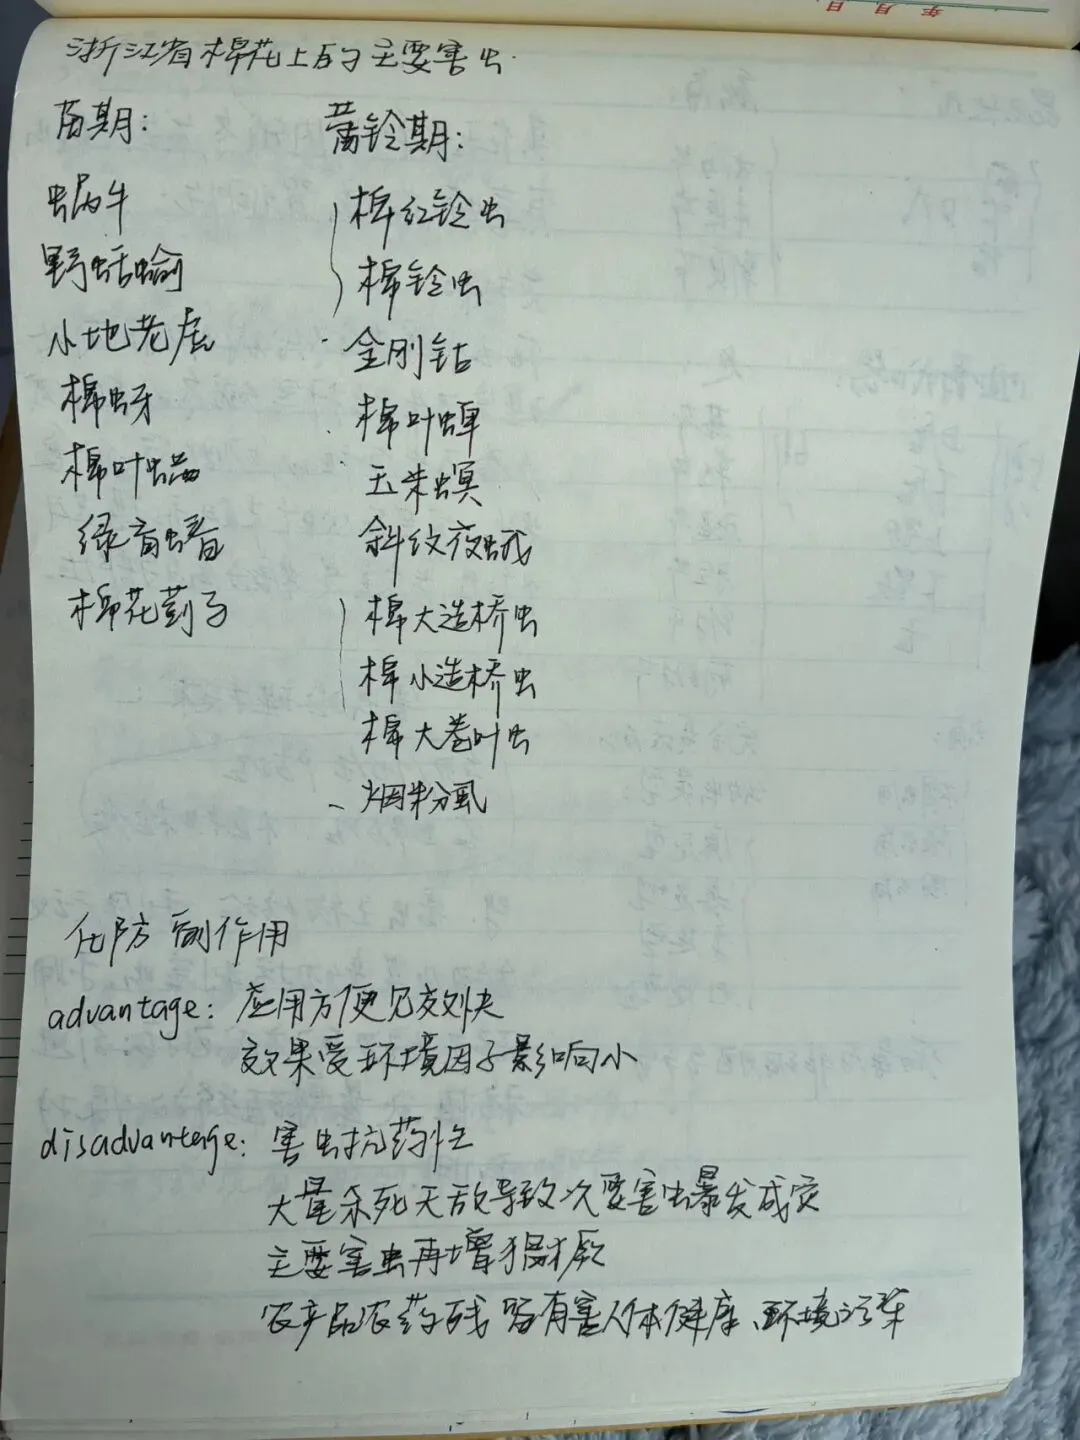 浙江省棉花上的主要害虫
苗期:
蜗牛
野蛞蝓
小地老虎
棉蚜
棉叶螨
绿盲蝽
棉花蓟马
蕾铃期:
棉红铃虫
棉铃虫
金刚钻
棉叶蝉
玉米螟
斜纹夜蛾
棉大造桥虫
棉小造桥虫
棉大卷叶虫
烟粉虱
化防副作用
advantage: 应用方便见效快
效果受环境因子影响小
disadvantage: 害虫抗药性
大量杀死天敌导致次要害虫暴发成灾
主要害虫再增猖獗
农产品农药残留有害人体健康、环境污染
年 月 日